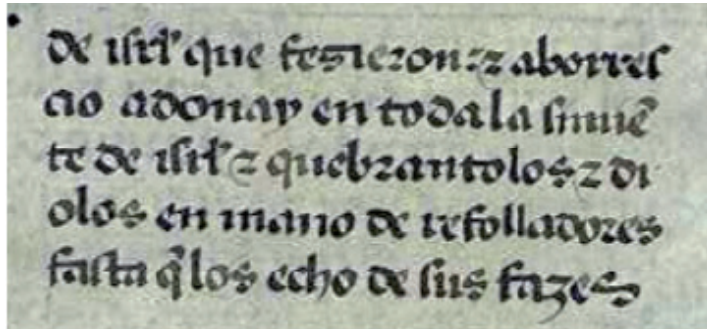 de isrł que fezieron ⁊ aborres
cio adonay en toda la simiẽ
te de isrł ⁊ quebrantolos ⁊ di
olos en mano de refolladores
fasta q̃ los echo de sus fazes